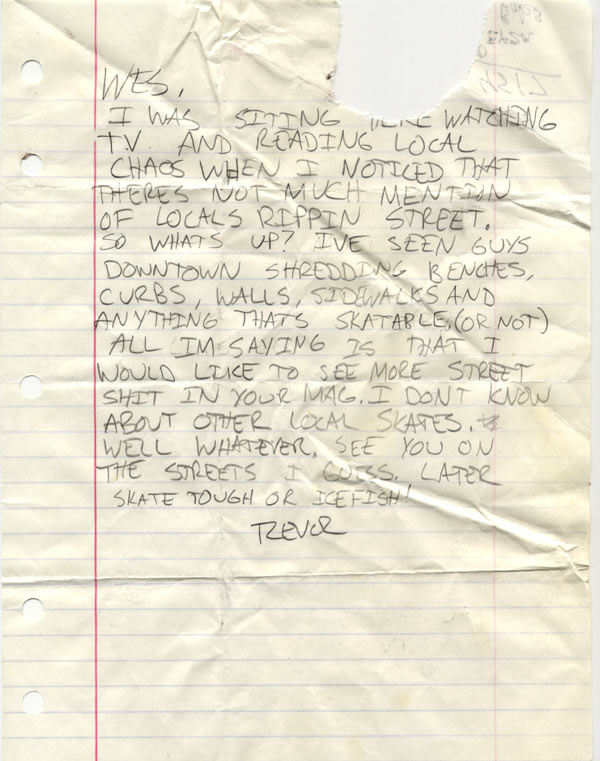 WES,
I WAS SITING HERE WATCHING
TV. AND READING LOCAL
CHAOS WHEN I NOTICED THAT
THERES NOT MUCH MENTION
OF LOCALS RIPPIN STREET.
SO WHATS UP? IVE SEEN GUYS
DOWNTOWN SHREDDING BENCHES,
CURBS, WALLS, SIDEWALKS AND
ANYTHING THATS SKATABLE.(OR NOT)
ALL IM SAYING IS THAT I
WOULD LIKE TO SEE MORE STREET
SHIT IN YOUR MAG. I DON'T KNOW
ABOUT OTHER LOCAL SKATES.
WELL WHATEVER. SEE YOU ON
THE STREETS I GUESS. LATER
SKATE TOUGH OR ICEFISH!
TREVOR